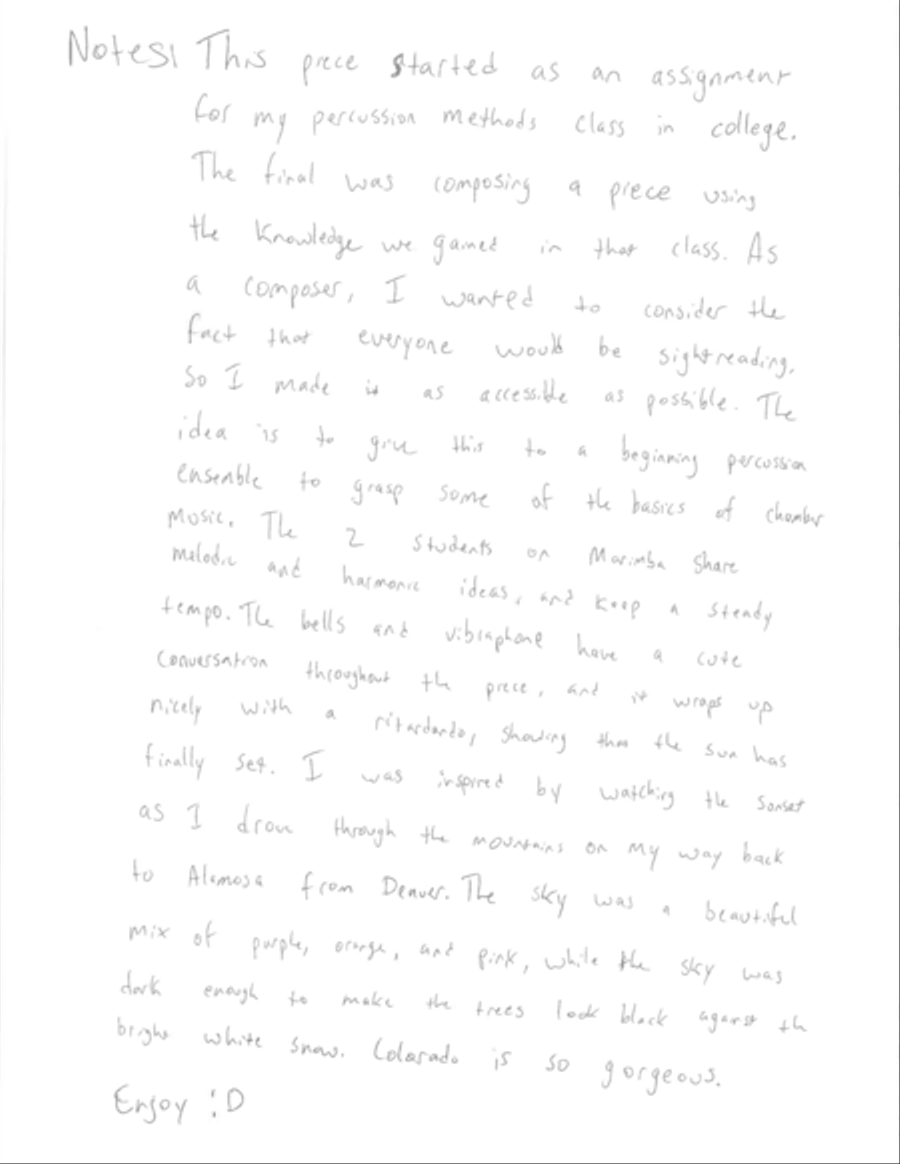 Notes: This piece started as an assignment
for my percussion methods class in college.
The final was composing a piece using
the knowledge we gained in that class. As
a composer, I wanted to consider the
fact that everyone would be sightreading,
so I made it as accessible as possible. The
idea is to give this to a beginning percussion
ensemble to grasp some of the basics of chamber
music. The 2 students on Marimba share
melodic and harmonic ideas, and keep a steady
tempo. The bells and vibraphone have a cute
conversation throughout the piece, and it wraps up
nicely with a ritardando, showing that the sun has
finally set. I was inspired by watching the sunset
as I drove through the mountains on my way back
to Alamosa from Denver. The sky was a beautiful
mix of purple, orange, and pink, while the sky was
dark enough to make the trees look black against th
bright white snow. Colorado is so gorgeous.
Enjoy :D